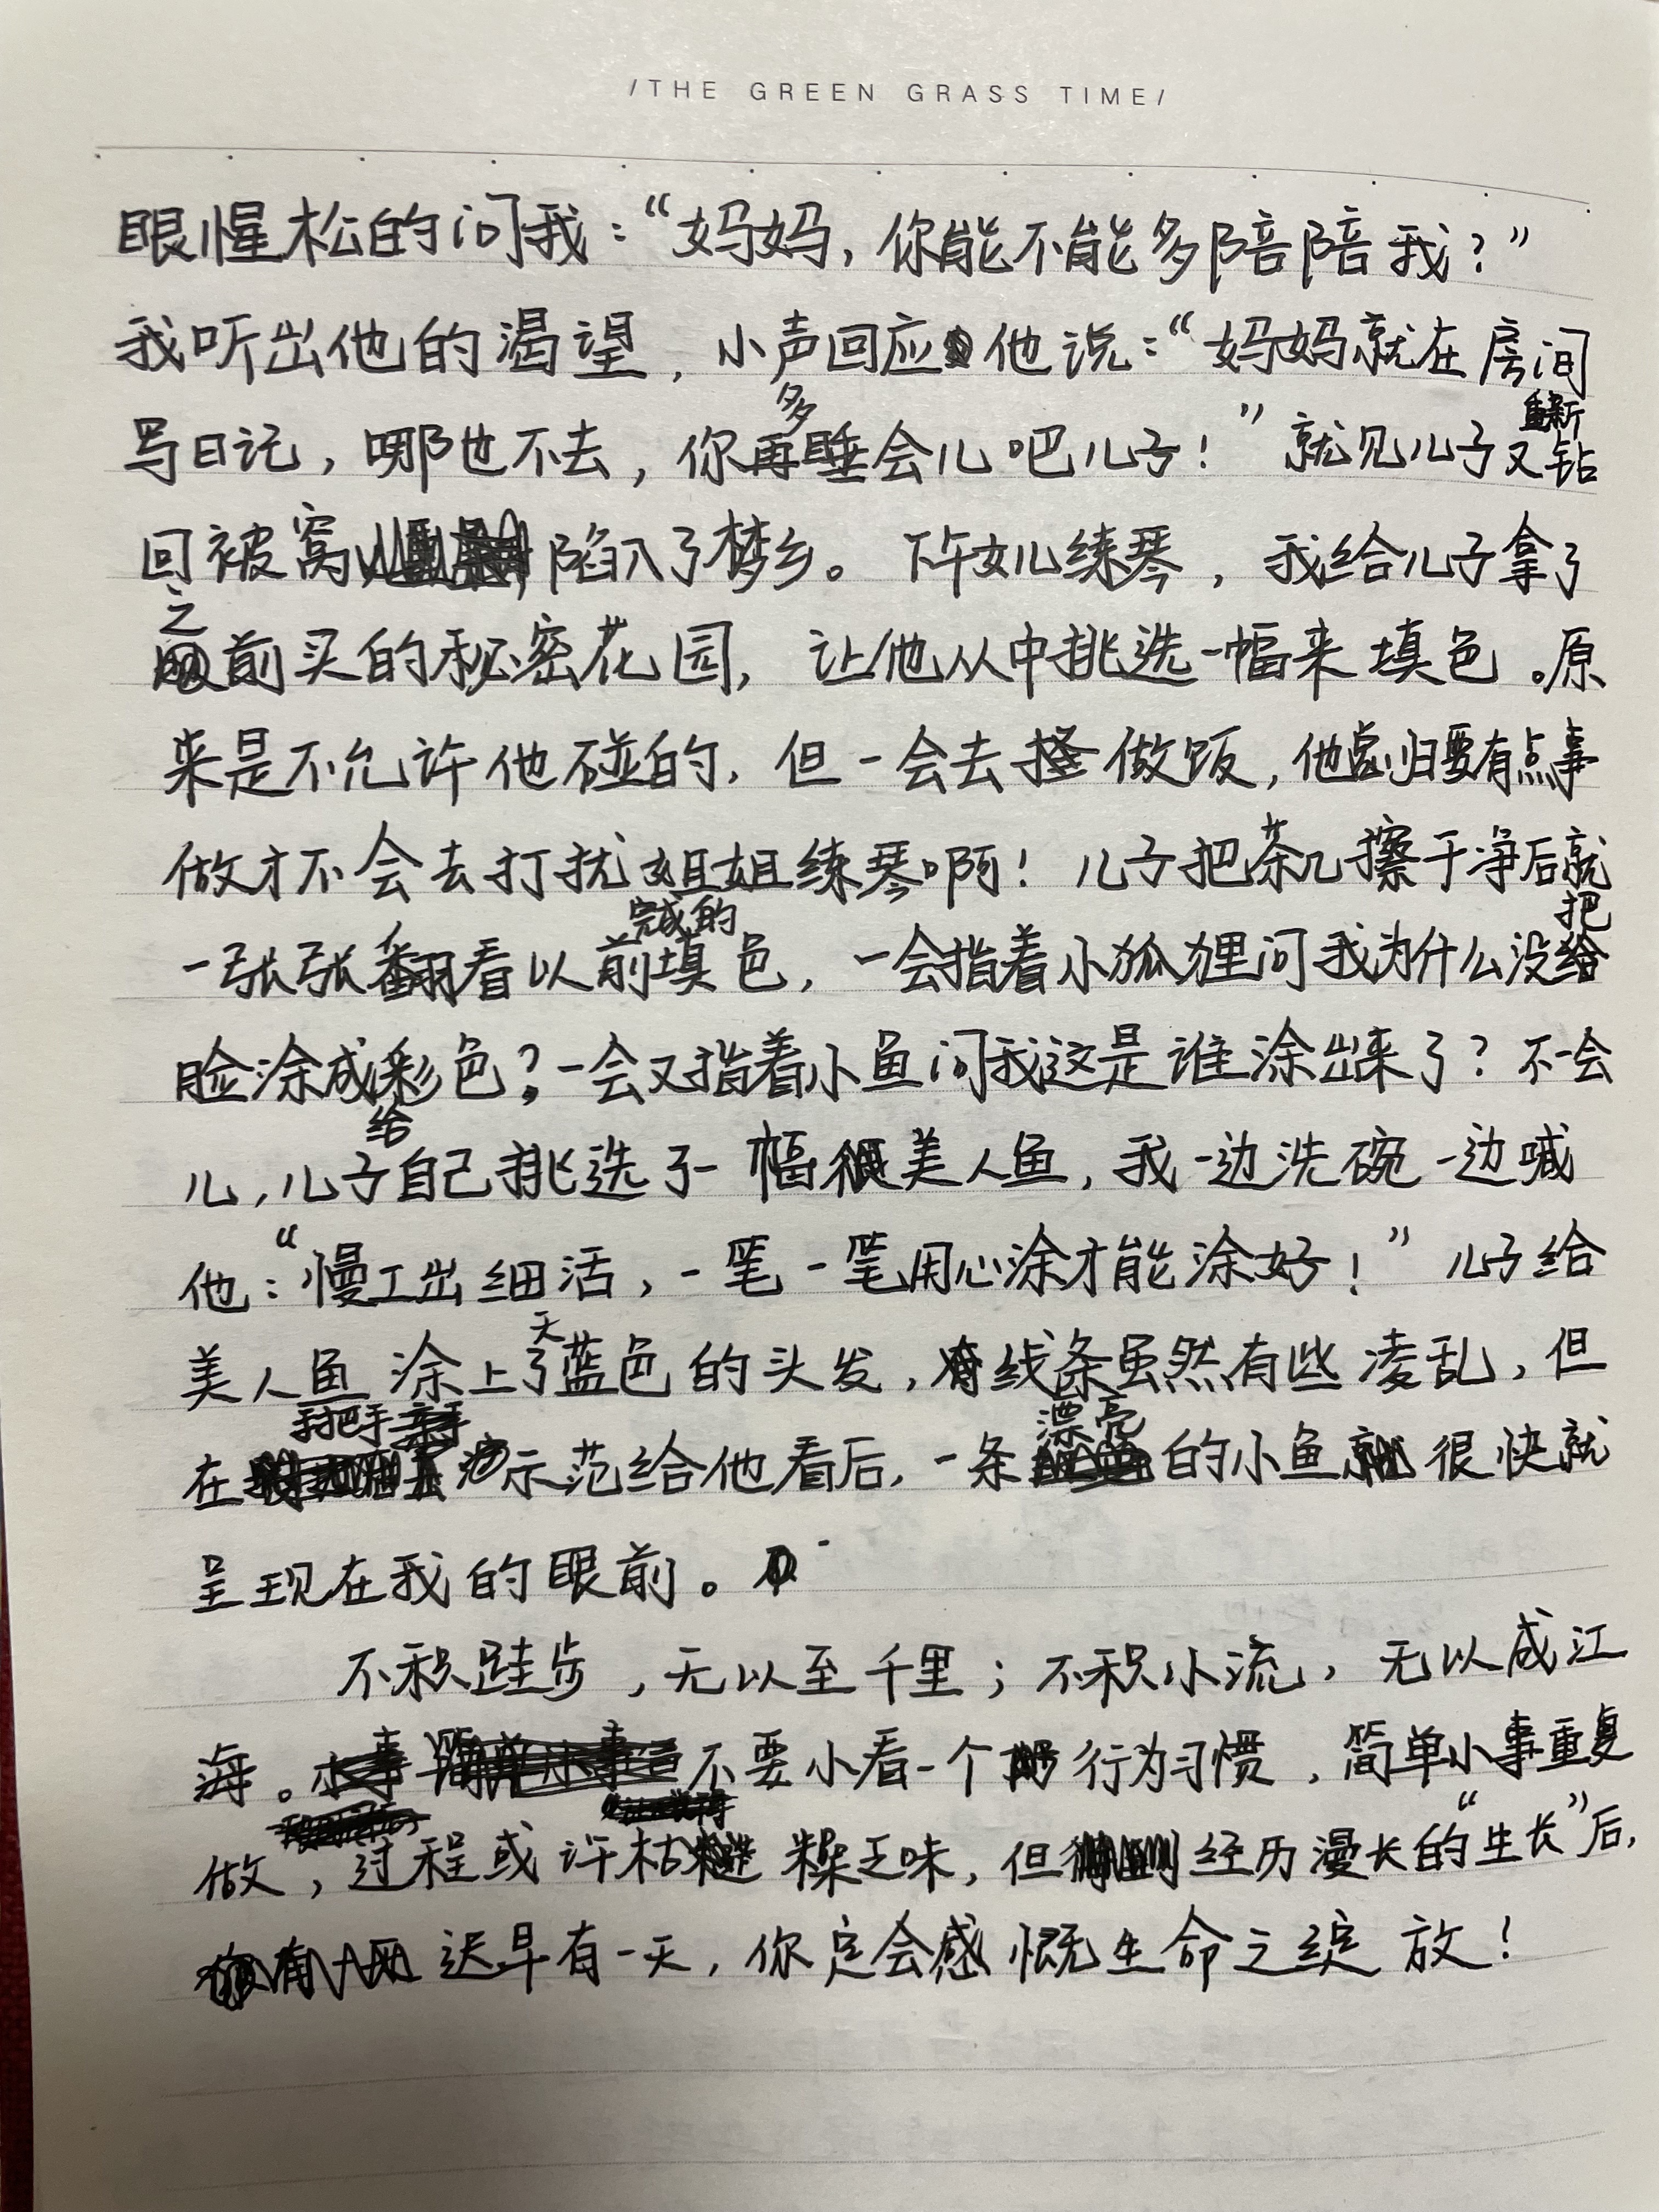 /THE GREEN GRASS TIME/
眼惺松的问我：“妈妈，你能不能多陪陪我？”
我听出他的渴望，小声回应他说：“妈妈就在房间
写日记，哪也不去，你再多睡会儿吧儿子！”就见儿子又重新钻
回被窝陷入了梦乡。下午女儿练琴，我给儿子拿了
之前买的秘密花园，让他从中挑选一幅来填色。原
来是不允许他碰的，但一会去做饭，他总归要有点事
做才不会去打扰姐姐练琴啊！儿子把茶几擦干净后就
一张张翻看以前完成的填色，一会指着小狐狸问我为什么没把
脸涂成彩色？一会又指着小鱼问我这是谁涂出来了？不一会
儿，儿子给自己挑选了一幅美人鱼，我一边洗碗一边喊
他：“慢工出细活，一笔一笔用心涂才能涂好！”儿子给
美人鱼涂上了天蓝色的头发，线条虽然有些凌乱，但
在手把手示范给他看后，一条漂亮的小鱼很快就
呈现在我的眼前。
不积跬步，无以至千里；不积小流，无以成江
海。不要小看一个行为习惯，简单小事重复
做，过程或许枯糙乏味，但经历漫长的“生长”后，
迟早有一天，你定会感慨生命之绽放！